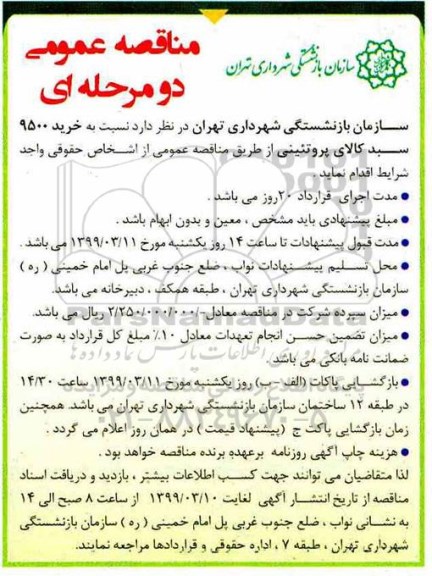 سازمان بازنشستگی شهرداری تهران
مناقصه عمومی
دو مرحله ای
سازمان بازنشستگی شهرداری تهران در نظر دارد نسبت به خرید ۹۵۰۰
سبد کالای پروتئینی از طریق مناقصه عمومی از اشخاص حقوقی واجد
شرایط اقدام نماید .
● مدت اجرای قرارداد ۲۰روز می باشد .
● مبلغ پیشنهادی باید مشخص ، معین و بدون ابهام باشد .
● مدت قبول پیشنهادات تا ساعت ۱۴ روز یکشنبه مورخ ۱۳۹۹/۰۳/۱۱ می باشد .
● محل تسلیم پیشنهادات نواب ، ضلع جنوب غربی پل امام خمینی ( ره )
سازمان بازنشستگی شهرداری تهران ، طبقه همکف ، دبیرخانه می باشد.
● میزان سپرده شرکت در مناقصه معادل-/۲/۲۵۰/۰۰۰/۰۰۰ ریال می باشد.
● میزان تضمین حسن انجام تعهدات معادل ۱۰٪ مبلغ کل قرارداد به صورت
ضمانت نامه بانکی می باشد.
● بازگشایی پاکات (الف-ب) روز یکشنبه مورخ ۱۳۹۹/۰۳/۱۱ ساعت ۱۴/۳۰
در طبقه ۱۲ ساختمان سازمان بازنشستگی شهرداری تهران می باشد. همچنین
زمان بازگشایی پاکت ج (پیشنهاد قیمت ) در همان روز اعلام می گردد .
● هزینه چاپ آگهی روزنامه برعهده برنده مناقصه خواهد بود .
لذا متقاضیان می توانند جهت کسب اطلاعات بیشتر ، بازدید و دریافت اسناد
مناقصه از تاریخ انتشار آگهی لغایت ۱۳۹۹/۰۳/۱۰ از ساعت ۸ صبح الی ۱۴
به نشانی نواب ، ضلع جنوب غربی پل امام خمینی ( ره ) سازمان بازنشستگی
شهرداری تهران ، طبقه ۷ ، اداره حقوقی و قراردادها مراجعه نمایند.
ParsNamadData